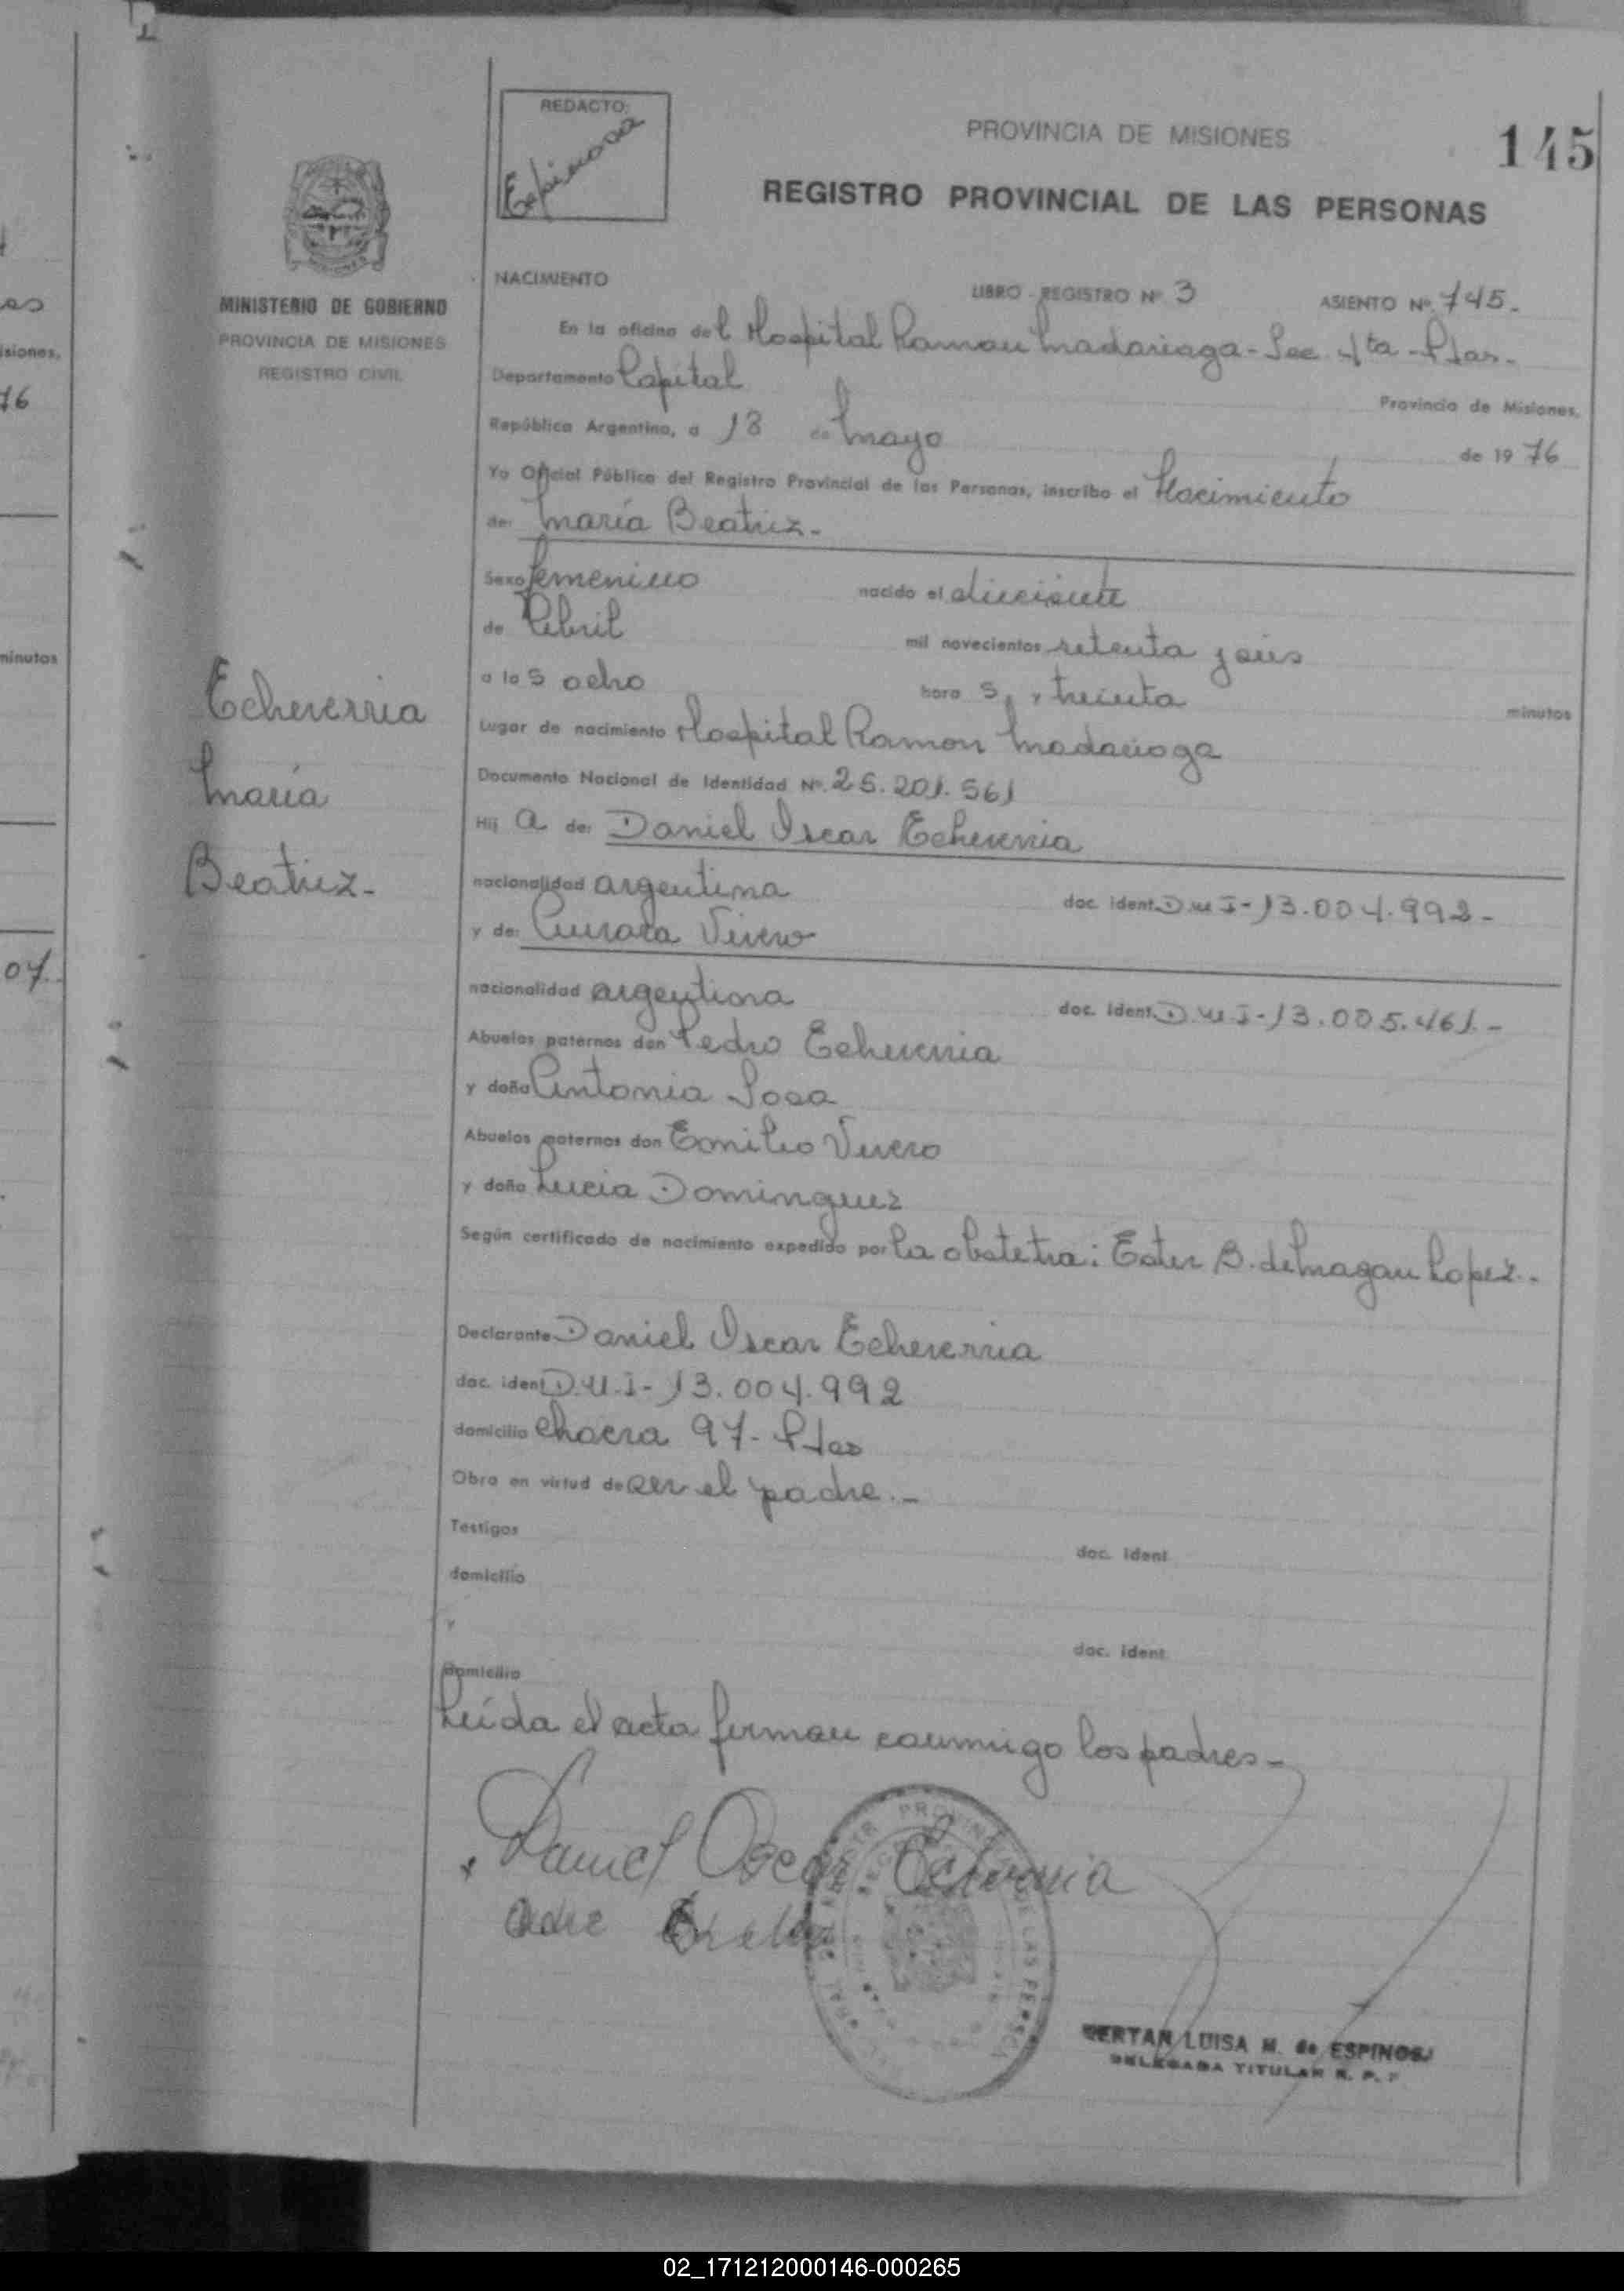 REDACTO:
Espinosa
PROVINCIA DE MISIONES
145
REGISTRO PROVINCIAL DE LAS PERSONAS
MISIONES
MINISTERIO DE GOBIERNO
PROVINCIA DE MISIONES
REGISTRO CIVIL
NACIMIENTO
LIBRO - REGISTRO Nº 3 ASIENTO Nº 745.-
En la oficina del Hospital Ramon Madariaga - Sec. 4ta - Pdas.-
Departamento Capital Provincia de Misiones,
República Argentina, a 18 de Mayo de 1976
Yo Oficial Público del Registro Provincial de las Personas, inscribo el Nacimiento
de: María Beatriz.-
Sexo femenino nacido el diecisiete
de Abril mil novecientos setenta y seis
a las ocho horas, y treinta minutos
Lugar de nacimiento Hospital Ramon Madariaga
Documento Nacional de Identidad Nº 25.201.561
Hija de: Daniel Oscar Echeverria
nacionalidad argentina doc. ident. D.N.I-13.004.992-
y de: Aurora Vivero
nacionalidad argentina doc. ident. D.N.I-13.005.461.-
Abuelos paternos don Pedro Echeverria
y doña Antonia Sosa
Abuelos maternos don Emilio Vivero
y doña Lucia Dominguez
Según certificado de nacimiento expedido por la obstetra: Ester B. de Magan Lopez.-
Declarante Daniel Oscar Echeverria
doc. ident D.N.I- 13.004.992
domicilio Chacra 97- Pdas
Obra en virtud de ser el padre.-
Testigos doc. ident
domicilio
y doc. ident
domicilio
Leida el acta firman conmigo los padres-
Echeverria
María
Beatriz.-
Daniel Oscar Echeverria
LUISA M. de ESPINOSA
DELEGADA TITULAR R. P. P
isiones,
76
minutos
07.
02_171212000146-000265